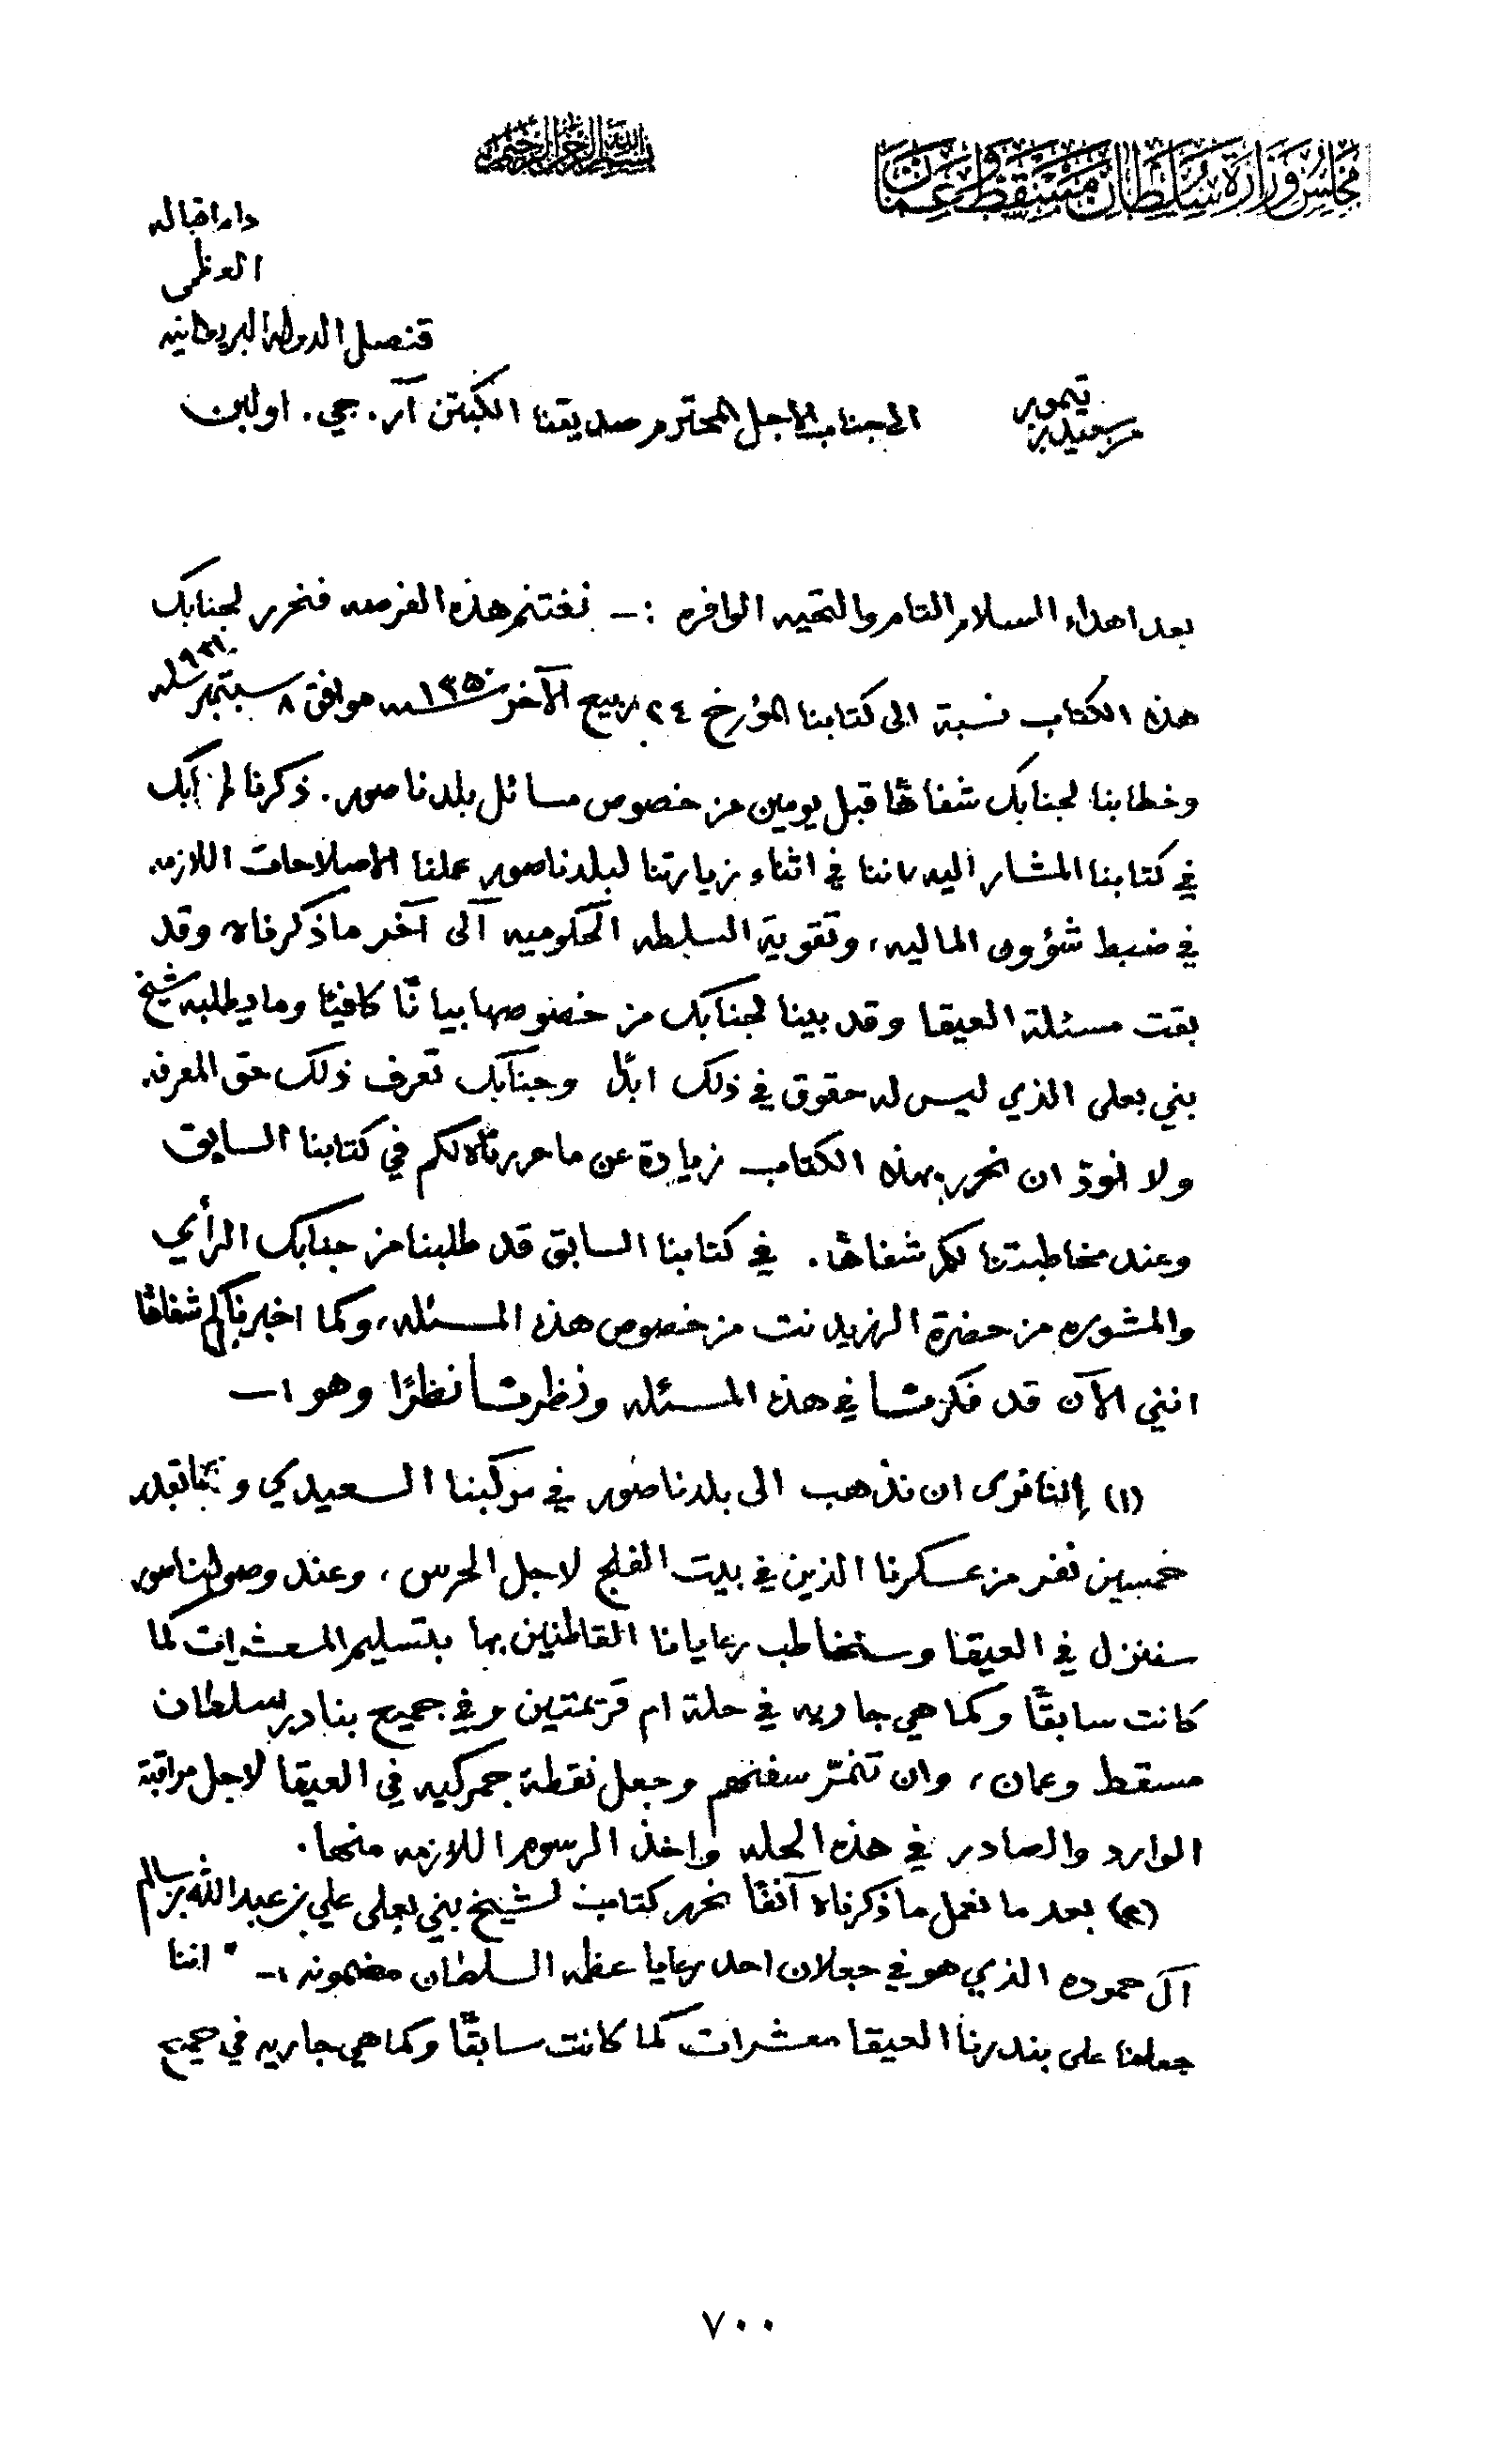 بسم الله الرحمن الرحيم
مجلس وزارة سلطان مسقط وعمان
من سعيد بن تيمور
الى جناب الاجل المحترم صديقنا الكبتن آر. جي. اولبن
قنصل الدولة البريطانيه
العظمى
دام اقباله
بعد اهداء السلام التام والتحيه الوافره :ـ نغتنم هذه الفرصه فنحرر لجنابك
هذه الكتاب نسبة الى كتابنا المؤرخ ٢٤ ربيع الآخر سنه ١٣٥٠ موافق ٨ سبتمبر سنه ١٩٣١
وخطابنا لجنابك شفاهًا قبل يومين من خصوص مسائل بلدنا صور. ذكرنا لجنابك
في كتابنا المشار اليه باننا في اثناء زيارتنا لبلدنا صور عملنا الاصلاحات اللازمه
في ضبط شؤون الماليه، وتقوية السلطه الحكوميه آلى آخر ما ذكرناه وقد
بقت مسئلة العيقا وقد بينا لجنابك من خصوصها بيانًا كافيًا وما يطلبه شيخ
بني بعلى الذي ليس له حقوق في ذلك ابدًا وجنابك تعرف ذلك حق المعرفه
ولا نود ان نحرر بهذه الكتاب زيادة عن ما حررناه لكم في كتابنا السابق
وعند مخاطبتنا لكم شفاهًا. في كتابنا السابق قد طلبنا من جنابك الرأي
والمشوره من حضرة الرزيدنت من خصوص هذه المسئله، وكما اخبرناكم شفاهًا
انني الآن قد فكرت في هذه المسئله ونظرت نظرًا وهو :ـ
(١) إننا نرى ان نذهب الى بلدنا صور في مركبنا السعيدي و بقدر
خمسين نفر من عسكرنا الذين في بيت الفلج لاجل الحرس، وعند وصولنا صور
سننزل في العيقا وسنخاطب رعايانا القاطنين بها بتسليم المعشرات كما
كانت سابقًا وكما هي جاريه في حلة ام قريمتين وفي جميع بنادر سلطان
مسقط وعمان، وان تنمّر سفنهم وجعل نقطة جمركيه في العيقا لاجل مراقبة
الوارد والصادر في هذه الحله واخذ الرسوم اللازمه منها.
(٢) بعد ما نعمل ما ذكرناه آنفًا نحرر كتاب لشيخ بني بعلى علي بن عبدالله بن سالم
آل حموده الذي هو في جعلان احد رعايا عظمه السلطان مضمونه :ـ " اننا
جعلنا على بندرنا العيقا معشرات كما كانت سابقًا وكما هي جاريه في جميع
٧٠٠